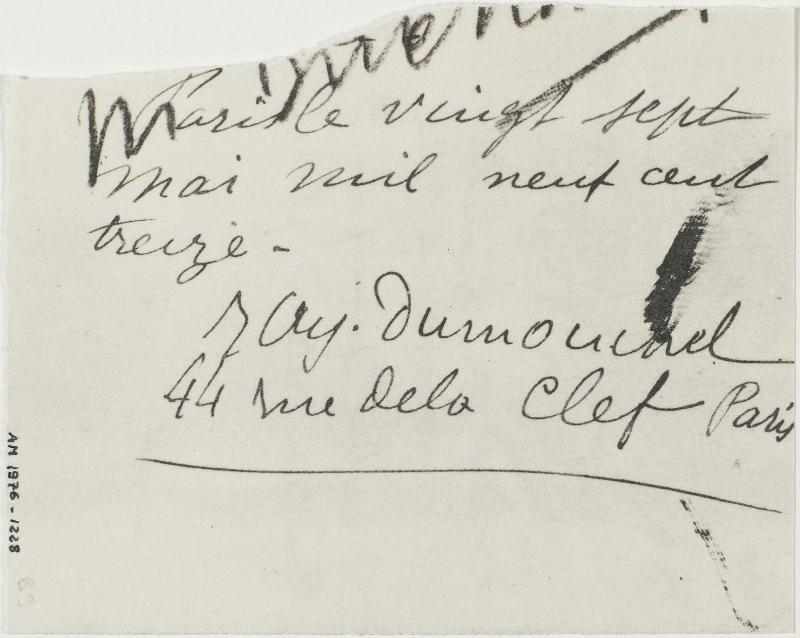 Paris le vingt sept
mai mil neuf cent
treize -
Ray. Dumouchel
44 rue dela Clef Paris
AM 1976-1228